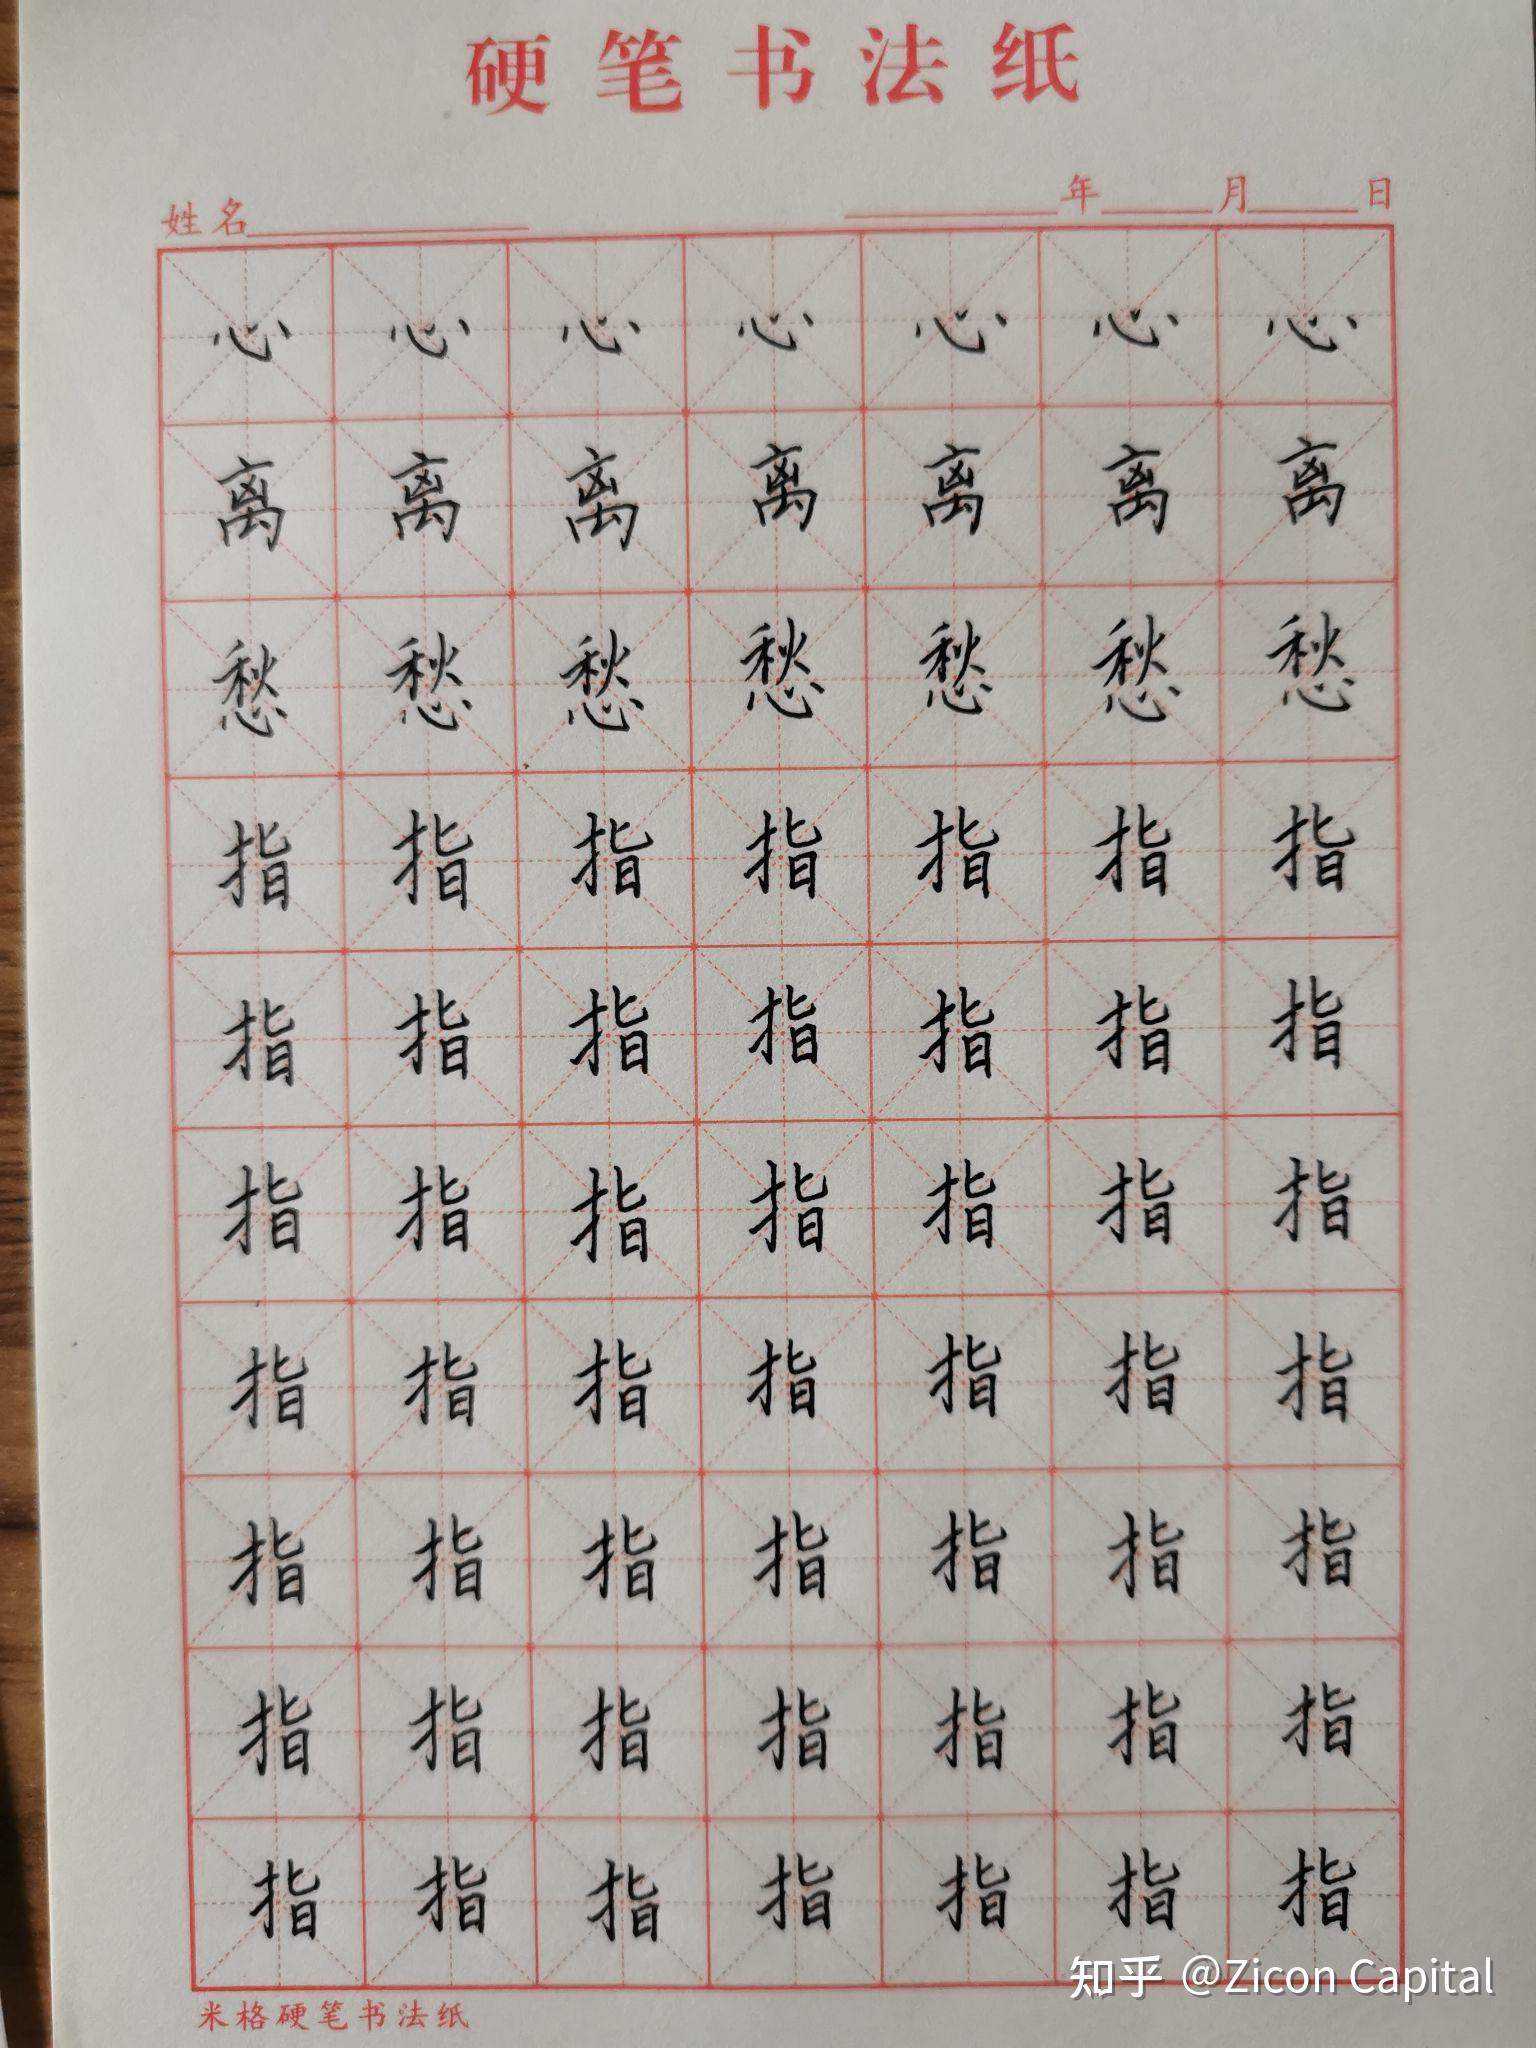 硬笔书法纸
姓名 年 月 日
心心心心心心心
离离离离离离离
愁愁愁愁愁愁愁
指指指指指指指
指指指指指指指
指指指指指指指
指指指指指指指
指指指指指指指
指指指指指指指
指指指指指指指
知乎 @Zicon Capital
米格硬笔书法纸